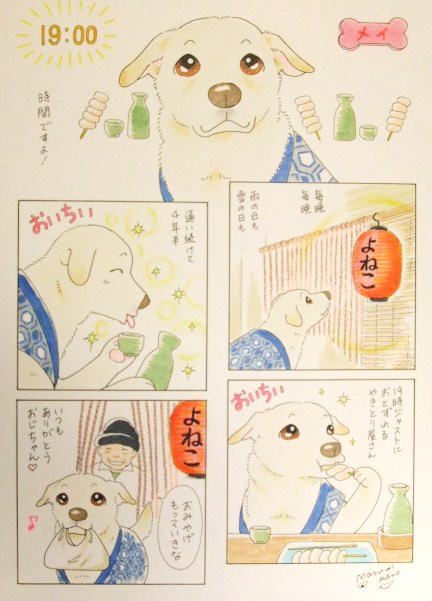 19:00
メイ
時間ですよ!
毎晩 毎晩
雨の日も
雪の日も
よねこ
通い続けて
4年半
おいちい
19時ジャストに
おとずれる
やきとり屋さん
おいちい
よねこ
おみやげ
もっていきな
いつも
ありがとう
おじちゃん♡